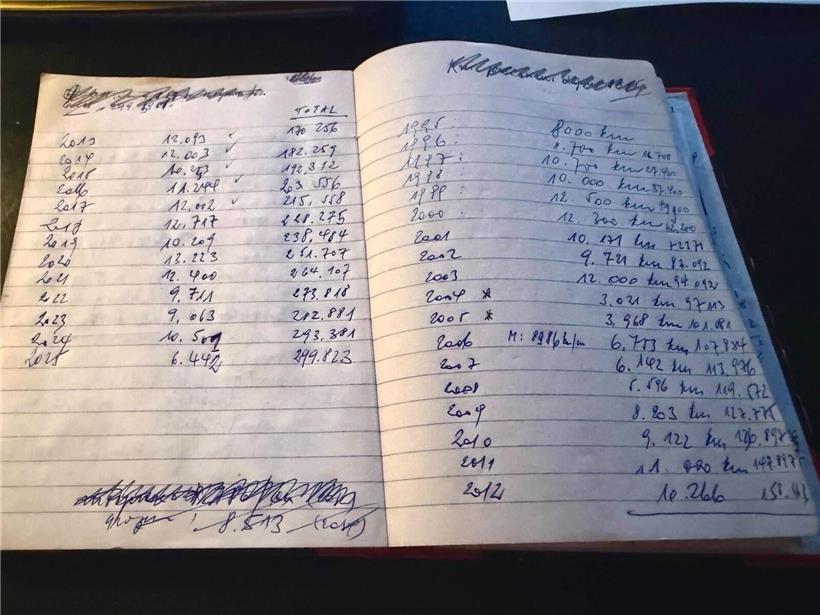 TOTAL
2013 12.093 ✓ 170 256
2014 12.003 ✓ 182.259
2015 10.053 ✓ 192.312
2016 11.244 ✓ 203 556
2017 12.002 215.558
2018 12.717 228.275
2019 10.209 238.484
2020 13.223 251.707
2021 12.400 264.107
2022 9.711 273.818
2023 9.063 282.881
2024 293.381
2025 6.442 299.823
8.513
1995: 8000 km
1996: 8.700 km 16.700
1997: 10.700 km 27.400
1998: 10.000 km 37.400
1999: 12.500 km 49.900
2000: 12.300 km 62.200
2001 10.171 km 72371
2002 9.721 km 82.092
2003 12.000 km 94.092
2004 * 3.021 km 97113
2005 * 3.968 km 101.081
2006 M: 8986km/m 6.753 km 107.834
2007 6.142 km 113.976
2008 5.596 km 119.572
2009 8.203 km 127.775
2010 9.122 km
2011 11.000 km
2012 10.266 158.163